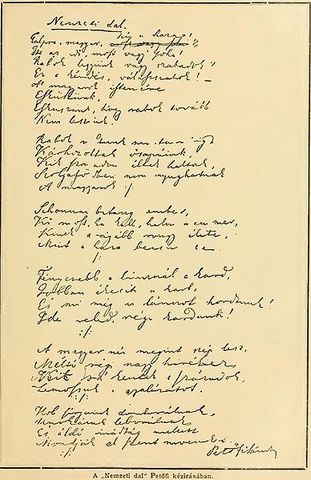 Nemzeti dal.
hí a haza!
Talpra, magyar,
Itt az idő, most vagy soha!
Rabok legyünk vagy szabadok?
Ez a kérdés, válaszszatok! –
A magyarok istenére
Esküszünk,
Esküszünk, hogy rabok tovább
Nem leszünk!
Rabok voltunk mostanáig
Kárhozottak ősapáink,
Kik szabadon éltek haltak,
Szolgaföldben nem nyughatnak
A magyarok :/:
Sehonnai bitang ember,
Ki most, ha kell, halni nem mer,
Kinek drágább rongy élete,
Mint a haza becsülete.
:/:
Fényesebb a láncznál a kard,
Jobban ékesíti a kart,
És mi még is lánczot hordtunk!
Ide veled, régi kardunk!
:/:
A magyar név megint szép lesz,
Méltó régi nagy hiréhez,
Mit rá kentek a századok,
Lemossuk a gyalázatot.
:/:
Hol sírjaink domborulnak,
Unokáink leborulnak,
És áldó imádság mellett
Mondják el szent neveinket.
:/:
Petőfi Sándor
A „Nemzeti dal“ Petőfi kézirásában.